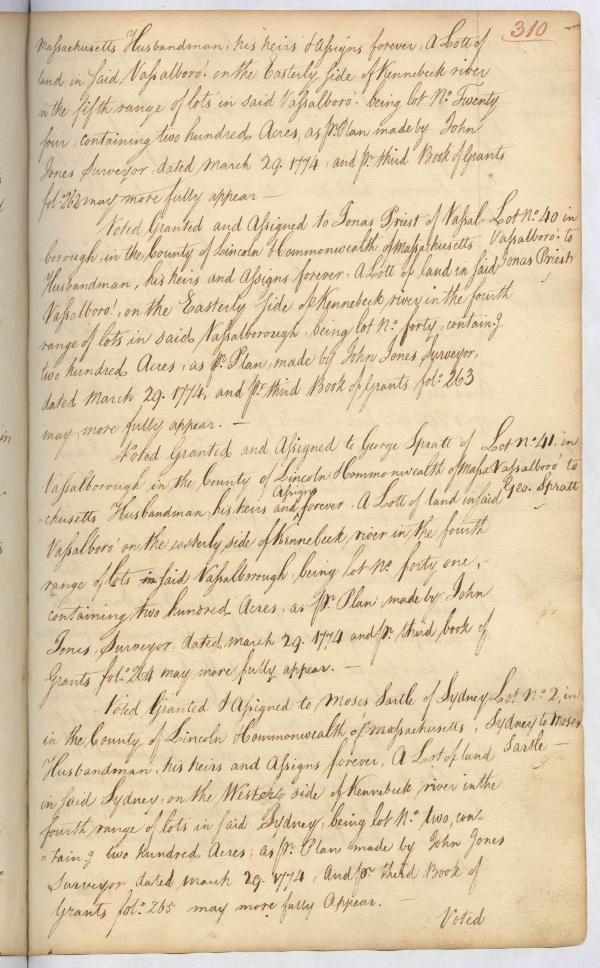 310
Massachusetts Husbandman, his heirs & Assigns forever, A Lott of
land in said Vassalboro'. on the Easterly side of Kennebeck river
in the fifth range of lots in said Vassalboro'. being lot No. Twenty
four, containing two hundred Acres, as pr. Plan made by John
Jones Surveyor, dated March 29. 1774, and pr. third Book of Grants
folo. 262 may more fully appear —
Voted Granted and Assigned to Jonas Priest of Vassal-
borough, in the County of Lincoln & Commonwealth of Massachusetts
Husbandman, his heirs and Assigns forever, A Lott of land in said
Vassalboro', on the Easterly side of Kennebeck river in the fourth
range of lots in said Vassalborough, being lot No. forty, containg.
two hundred Acres, as pr. Plan, made by John Jones Surveyor,
dated March 29. 1774, and pr. third Book of Grants folo. 263
may more fully appear. —
Lot No. 40 in
Vassalboro'. to
Jonas Priest
Voted Granted and Assigned to George Spratt of
Vassalborough in the County of Lincoln & Commonwealth of Massa-
=chusetts Husbandman, his heirs and Assigns forever, A Lott of land in said
Vassalboro' on the easterly side of Kennebeck river in the fourth
range of lots in said Vassalborough being lot No. forty one,
containing two hundred Acres, as pr. Plan, made by John
Jones, Surveyor, dated March 29. 1774 and pr. third book of
Grants folo. 264 may more fully appear. —
Lot No. 41, in
Vassalboro' to
Geo. Spratt
Voted Granted & Assigned to Moses Sartle of Sydney
in the County of Lincoln & Commonwealth of Massachusetts,
Husbandman, his heirs and Assigns forever, A Lot of land
in said Sydney, on the Westerly side of Kennebeck river in the
fourth range of lots in said Sydney, being lot No. two, con-
=taing. two hundred Acres, as pr. Plan made by John Jones
Surveyor dated March 29. 1774, And pr third Book of
Grants folo. 265 may more fully Appear. —
Lot No. 2, in
Sydney to Moses
Sartle —
Voted